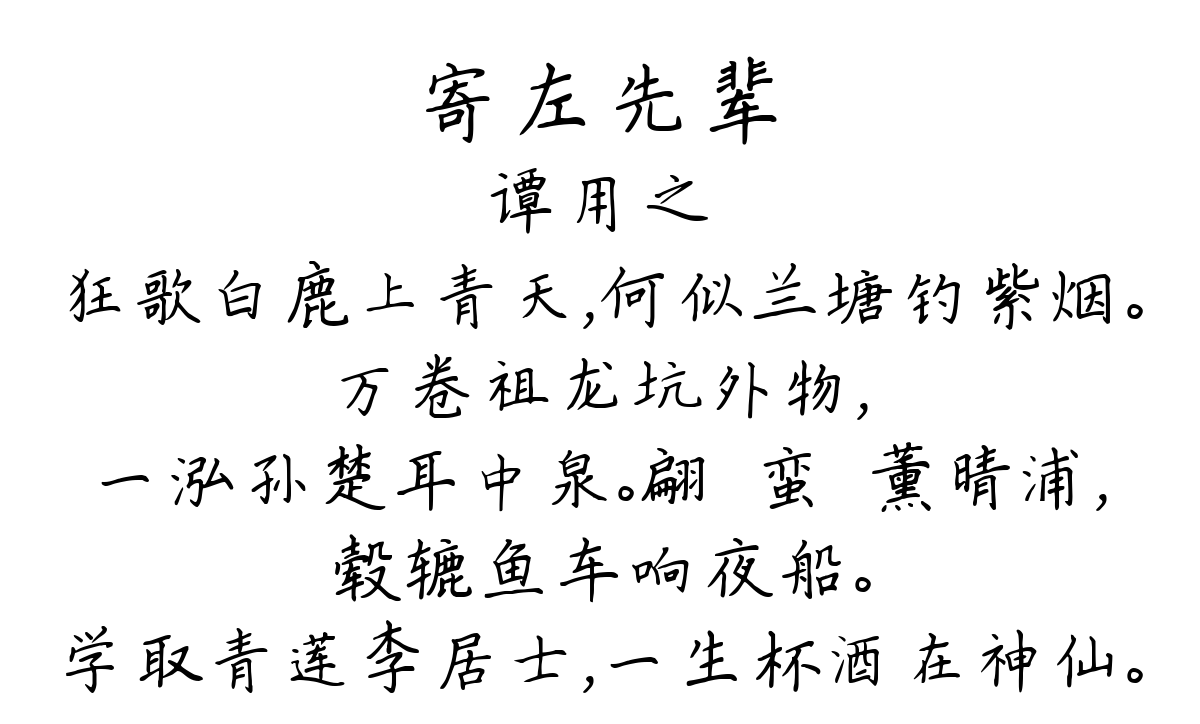 寄左先辈
谭用之
狂歌白鹿上青天,何似兰塘钓紫烟。
万卷祖龙坑外物,
一泓孙楚耳中泉。翩 蛮 薰晴浦,
毂辘鱼车响夜船。
学取青莲李居士,一生杯酒在神仙。